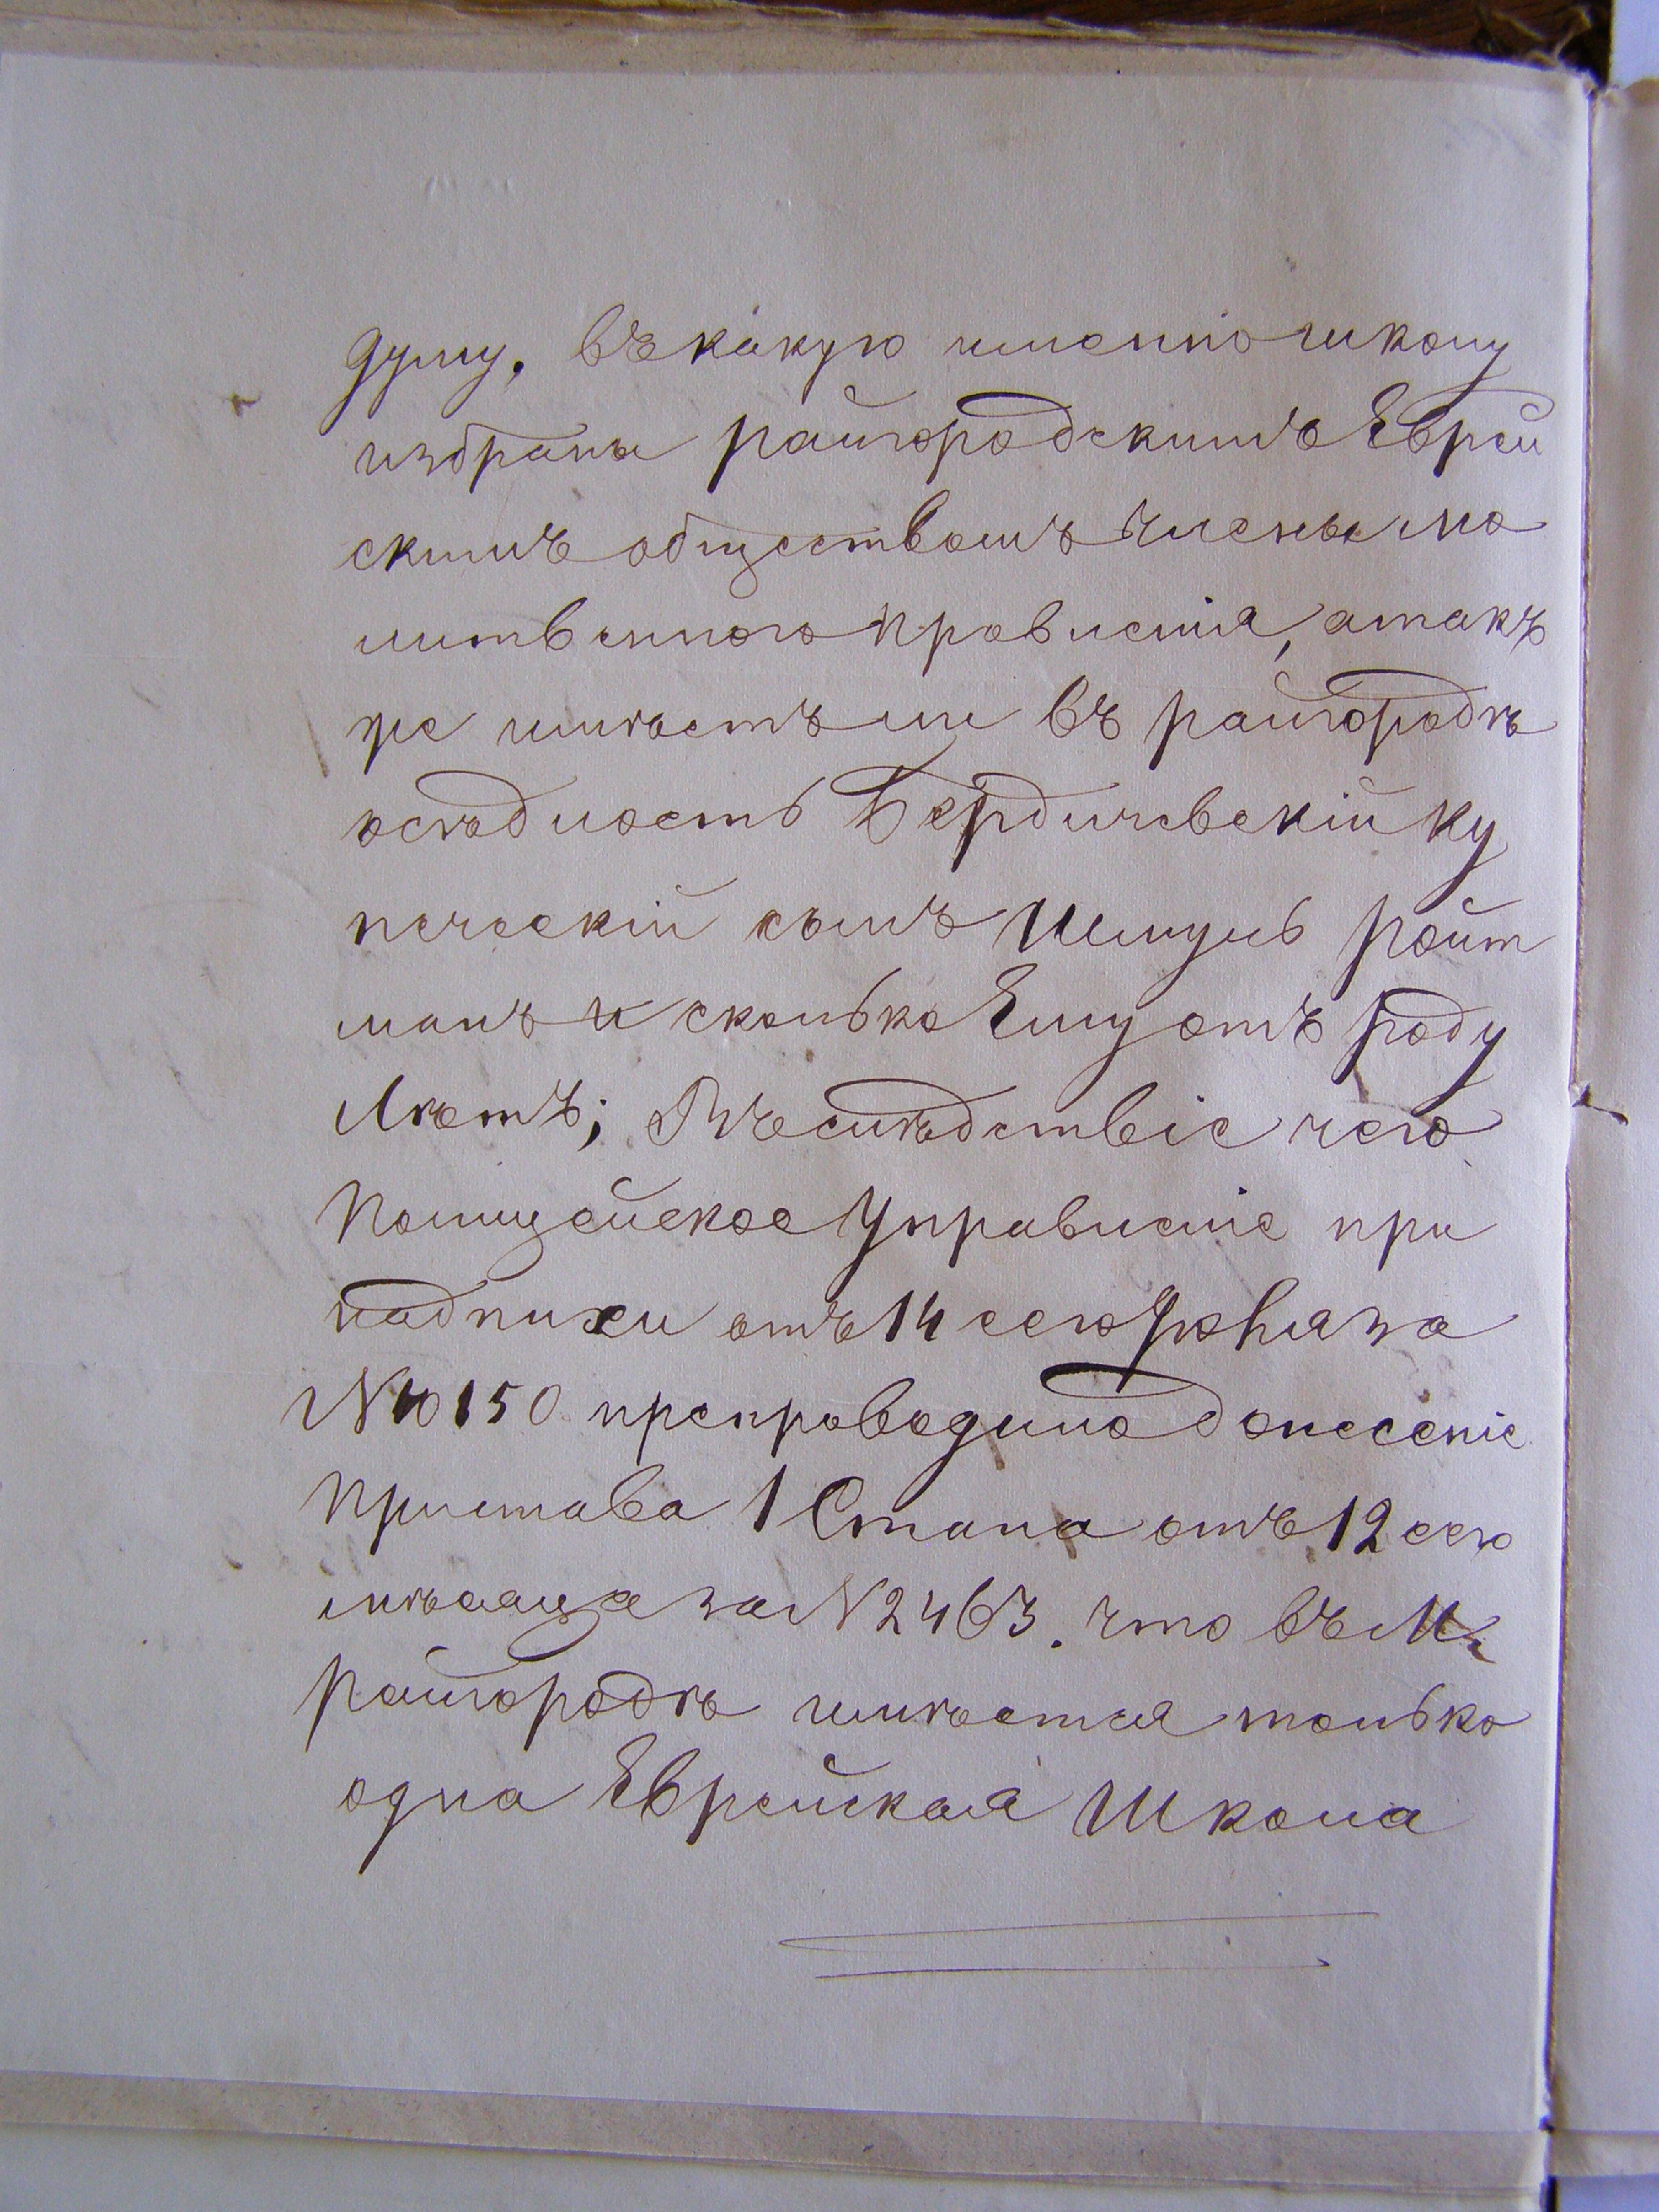 думу, въ какую именно школу
избраны райгородскимъ Еврей
скимъ обществомъ члены мо
литвеннаго правленія, атакъ
же имѣетъ ли въ райгородѣ
осѣдлость Бердичевскій ку
печескій сынъ Шмуль Ройт
манъ и сколько Ему отъ роду
Лѣтъ; Въслѣдствіе чего
Полицейское Управленіе при
надписи отъ 14 сего Юня за
N 10150 препроводило донесеніе
Пристава 1 Стана отъ 12 сего
мѣсяца за N 2463. что въ М.
Райгородѣ имѣется только
одна Еврейская Школа